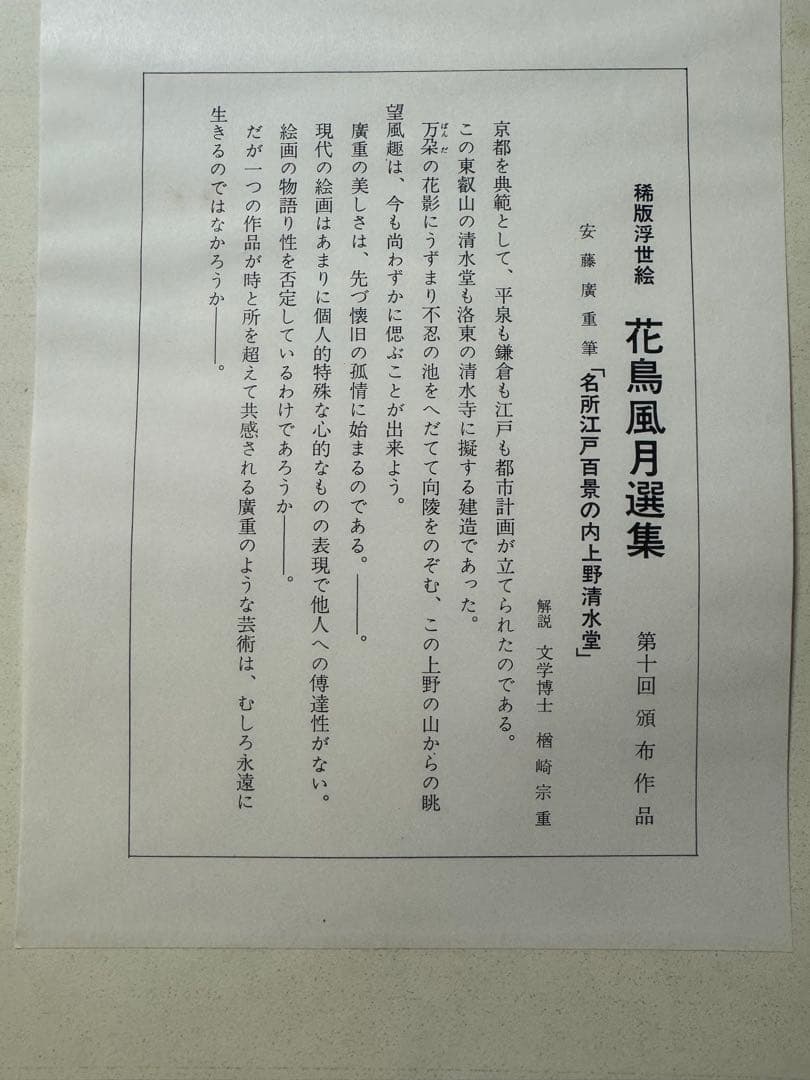 稀版浮世絵 花鳥風月選集 第十回頒布作品
安藤廣重筆「名所江戸百景の内上野清水堂」
解説 文学博士 楢崎宗重
京都を典範として、平泉も鎌倉も江戸も都市計画が立てられたのである。
この東叡山の清水堂も洛東の清水寺に擬する建造であった。
万朶の花影にうずまり不忍の池をへだてて向陵をのぞむ、この上野の山からの眺
ばんだ
望風趣は、今も尚わずかに偲ぶことが出来よう。
廣重の美しさは、先づ懐旧の孤情に始まるのである。――。
現代の絵画はあまりに個人的特殊な心的なものの表現で他人への傅達性がない。
絵画の物語り性を否定しているわけであろうか――。
だが一つの作品が時と所を超えて共感される廣重のような芸術は、むしろ永遠に
生きるのではなかろうか――。